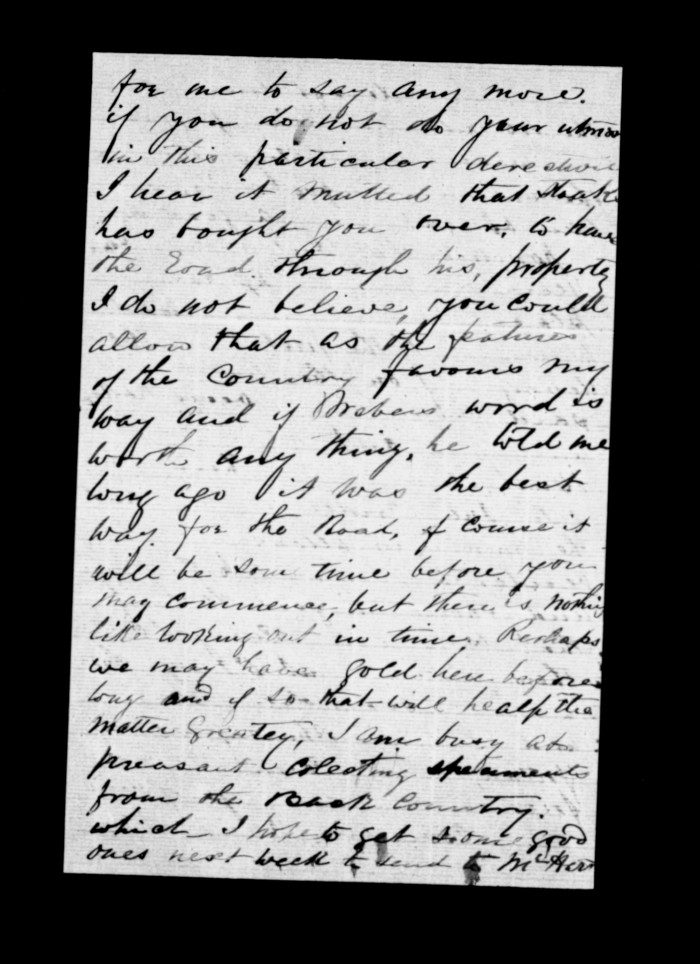 for me to say any more.
if you do not do your utmos
in this particular derection
I hear it mutted that
has bought you over, to have
the Road through his, property
I do not believe, you could
allow that as the features
of the Country favours my
way and if word is
worth any thing, he told me
long ago it was the best
way for the Road, of course it
will be som time before you
may commence, but there is nothing
like looking out in time. Perhaps
we may have gold here before
long and if so that will healp the
matter Greatey, I am busy at
preasant colecting
from the Back Country.
which I hope to get some good
ones next week to send to Mc